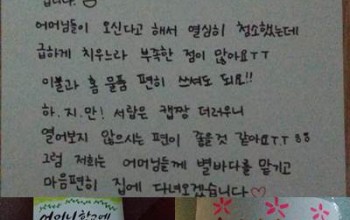 어머님들이 오신다고 해서 열심히 청소했는데
급하게 치우느라 부족한 점이 많아요ㅜㅜ
이불과 홈 물품 편히 쓰셔도 되요!!
하.지.만! 서랍은 캡짱 더러우니
열어보지 않으시는 편이 좋을것 같아요ㅜㅜ 88
그럼 저희는 어머님들께 별바다를 맡기고
마음편히 집에 다녀오겠습니다♡